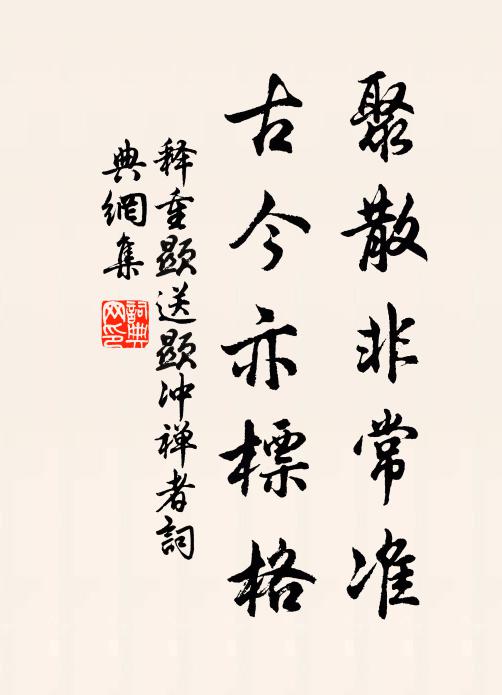 聚散非常准
古今亦標格
释重顯送顯冲禅者詞
典網集
詞典網印